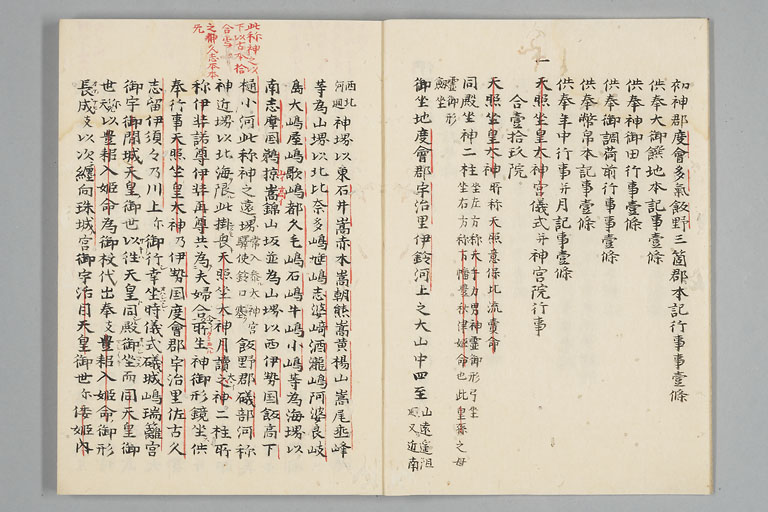 初神郡度會多氣飯野三箇郡本記行事事壹條
供奉大御饌地本記事壹條
供奉神御田行事壹條
供奉御調荷前行事事壹條
供奉幣帛本記事壹條
供奉年中行事并月記事壹條
一
天照坐皇大神宮儀式并神宮院行事
合壹拾玖院
天照坐皇大神 所称天照意保比流賣命
同殿坐神二柱 坐左方称天手力男神靈御形弓坐
坐右方称万幡豊秋津姫命也此皇孫之母
靈御形
釼坐
御坐地度會郡宇治里伊鈴河上之大山中四至 山遠遥阻
又近南
西北
河廻
神堺以東石井嵩赤木嵩朝熊嵩黄楊山嵩尾垂峰
等為山堺以北比奈多嶋志婆﨑酒瀧嶋阿婆良岐
嶋大嶋屋嶋歌嶋都久毛嶋石嶋牛嶋小嶋等為海堺以
南志摩国鵜掠嵩錦山坂並為山堺以西伊勢国飯高下
樋小河此称神之遠堺 飯野郡礒部河称
神近堺以北海限此掛奥天照坐大神月讀之神二柱所
称伊弉諾尊伊弉冉尊共為夫婦合所生神御形鏡坐供
奉行事天照坐皇大神乃伊勢国度會郡宇治里佐古久
志留伊須々乃川上御行幸坐時儀式礒城嶋瑞籬宮
御宇御間城天皇御世以往天皇同殿御坐而同天皇御
世以豊耜入姫命為御杖代出奉支豊耜入姫命御形
長成支以次纏向珠城宮御宇治目天皇御世倭姫内
此称神之以
下以古本拾
合雪